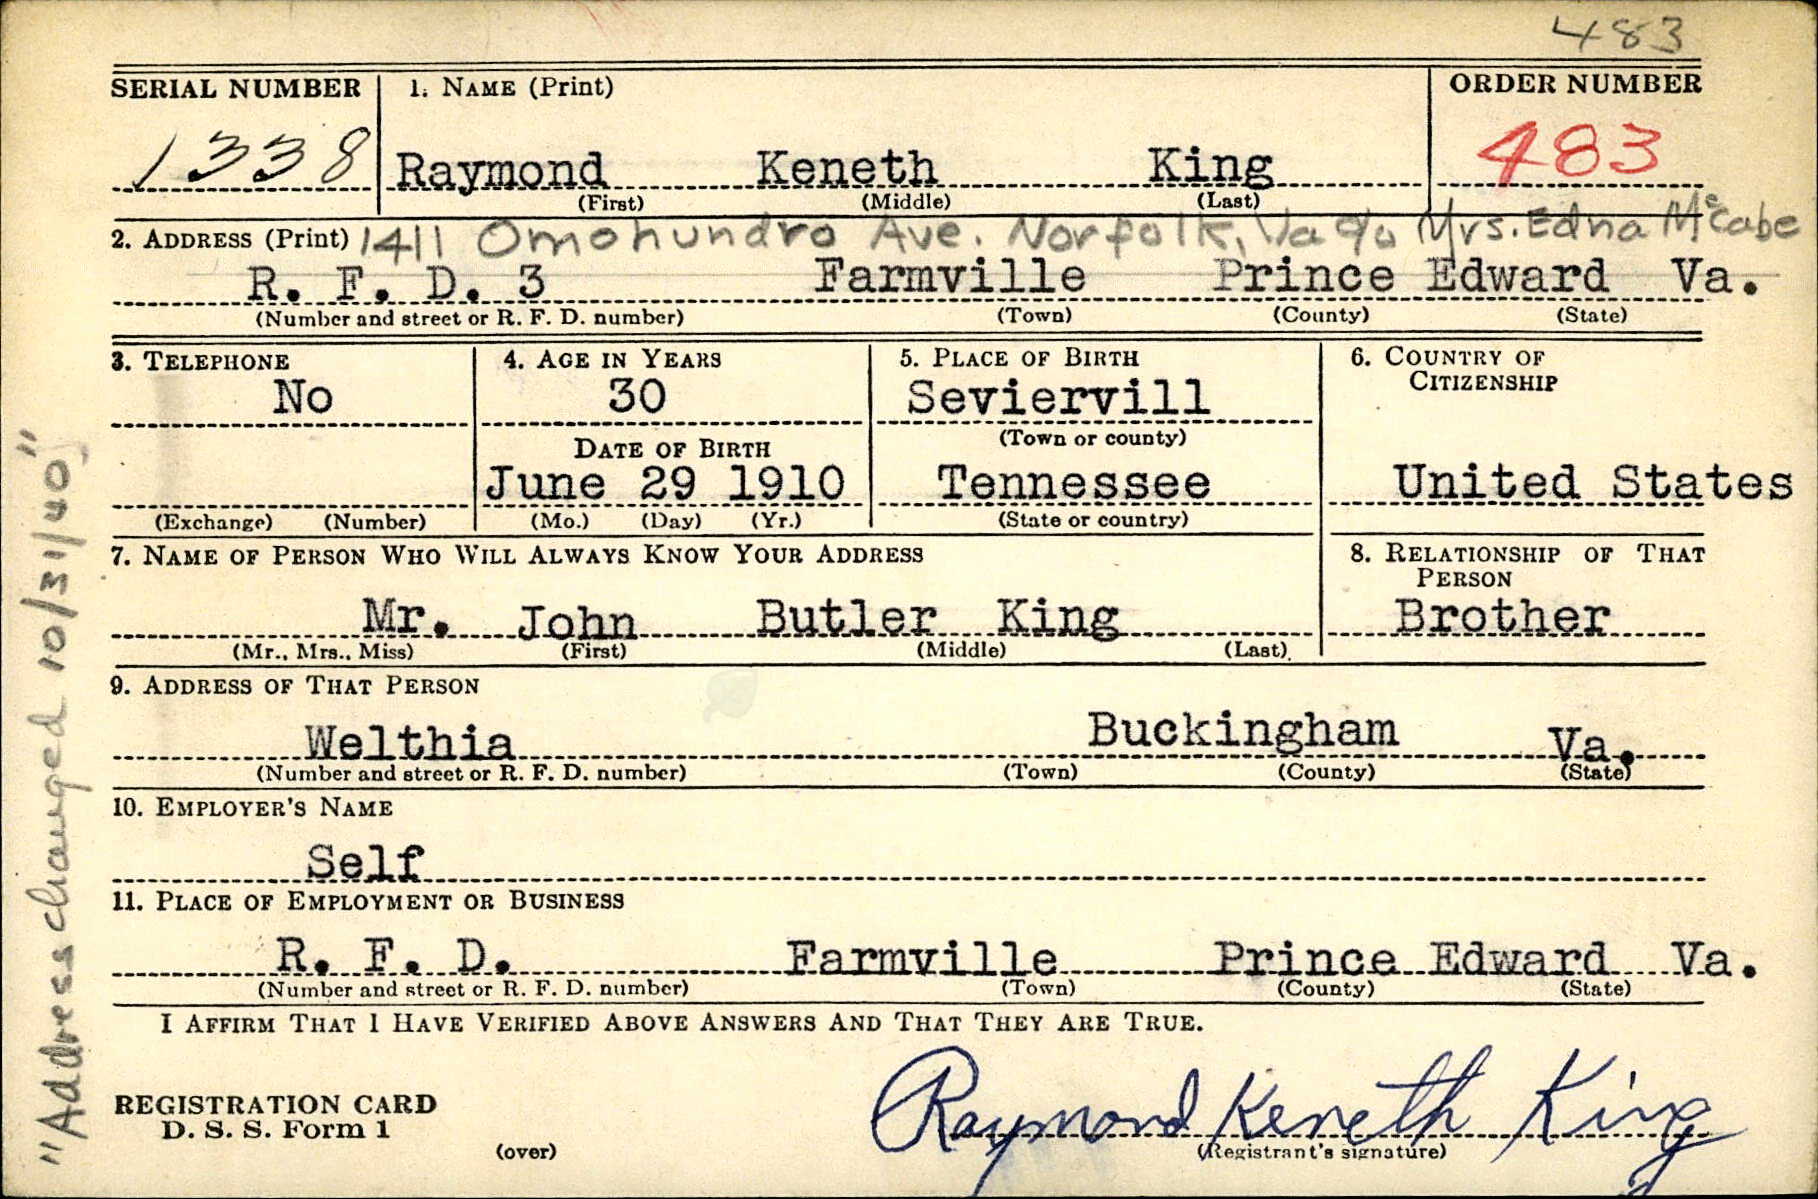 483
SERIAL NUMBER 1. NAME (Print) ORDER NUMBER
1338 Raymond Keneth King 483
(First) (Middle) (Last)
2. ADDRESS (Print) 1411 Omohundro Ave. Norfolk, Va c/o Mrs. Edna McCabe
R. F. D. 3 Farmville Prince Edward Va.
(Number and street or R. F. D. number) (Town) (County) (State)
3. TELEPHONE 4. AGE IN YEARS 5. PLACE OF BIRTH 6. COUNTRY OF
CITIZENSHIP
No 30 Seviervill
DATE OF BIRTH (Town or county)
June 29 1910 Tennessee United States
(Exchange) (Number) (Mo.) (Day) (Yr.) (State or country)
7. NAME OF PERSON WHO WILL ALWAYS KNOW YOUR ADDRESS 8. RELATIONSHIP OF THAT
PERSON
Mr. John Butler King Brother
(Mr., Mrs., Miss) (First) (Middle) (Last)
9. ADDRESS OF THAT PERSON
Welthia Buckingham Va.
(Number and street or R. F. D. number) (Town) (County) (State)
10. EMPLOYER'S NAME
Self
11. PLACE OF EMPLOYMENT OR BUSINESS
R. F. D. Farmville Prince Edward Va.
(Number and street or R. F. D. number) (Town) (County) (State)
I AFFIRM THAT I HAVE VERIFIED ABOVE ANSWERS AND THAT THEY ARE TRUE.
REGISTRATION CARD
D. S. S. Form 1
(over)
Raymond Keneth King
(Registrant's signature)
"Address changed 10/31/40"